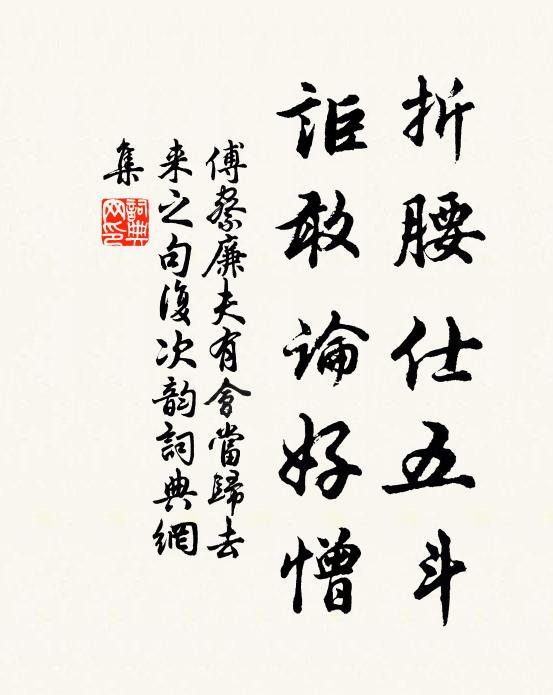 折腰仕五斗
詎敢論好憎
傅蔡廉夫有會當歸去
来之句復次韵詞典網
集
詞典网印